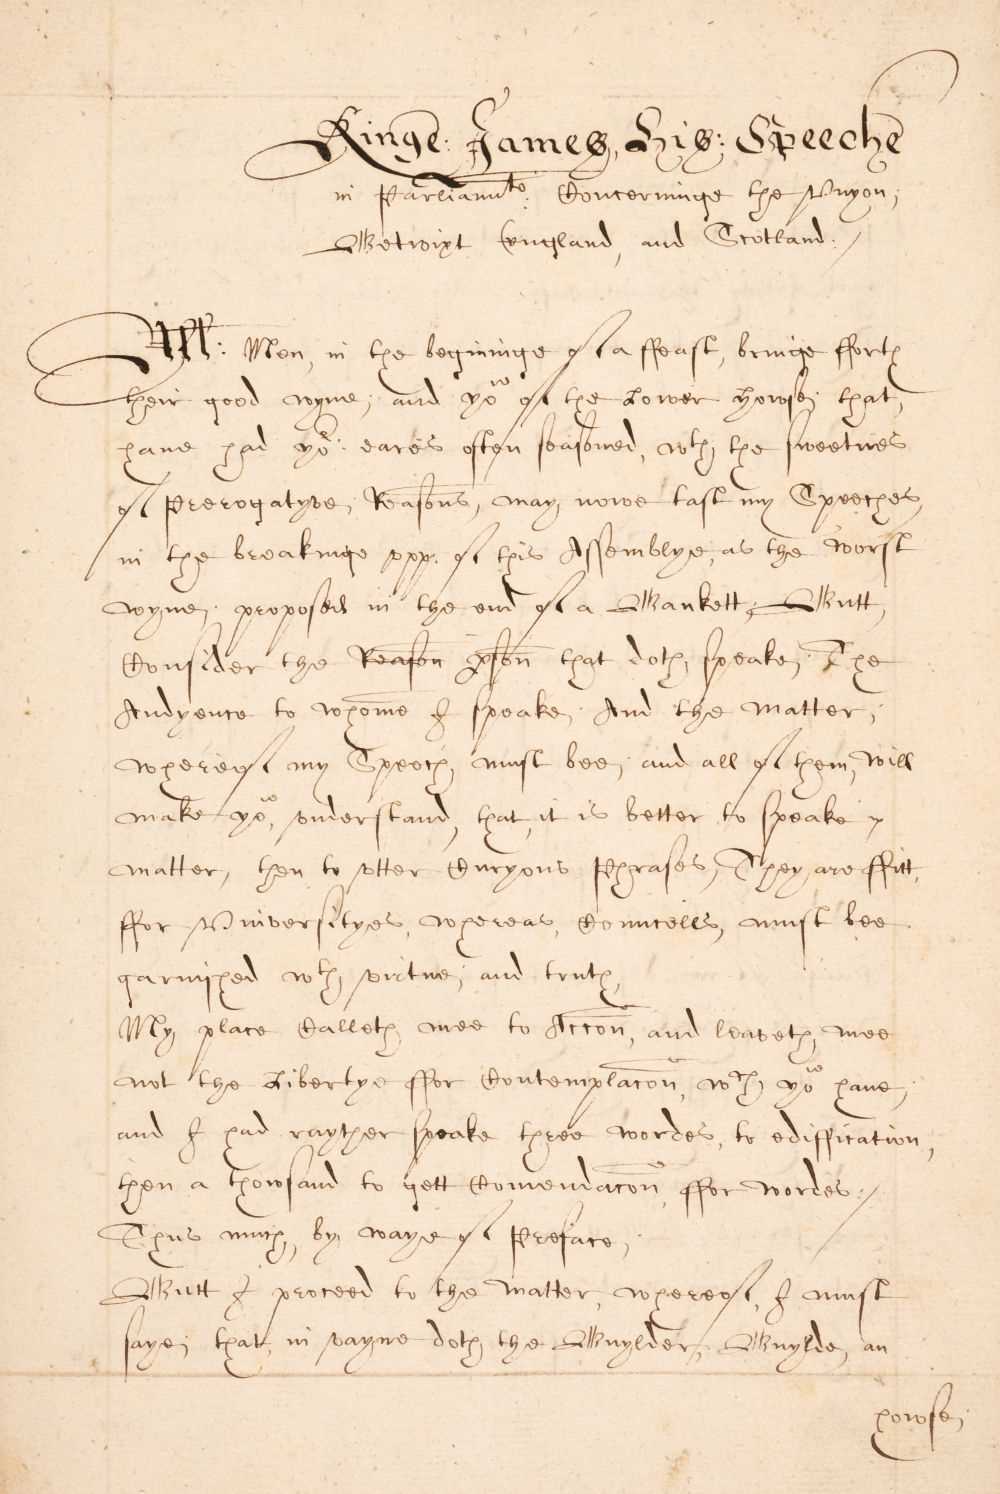 Kinge: James, His: Speeche
in Parliamte: Concerninge the Vnyon;
Betwixt England, and Scotland:/
All: Men, in the beginninge of a ffeast, bringe fforth
their good wyne; and yow of the Lower Howse; that,
haue had yor: eares often seasoned, wth, the sweetnes
of Prerogatyve, Reasons, may nowe tast my Speeches,
in the breakinge vpp. of this Assemblye, as the worst
wyne; proposed in the end of a Bankett; Butt,
Consider the Reason pson that doth, speake; The
Audyence to whome I speake; And the Matter;
whereof my Speech, must bee; and all of them, will
make yow, vnderstand, that, it is better to speake
matter, then to vtter Curyous Phrases, They, are ffitt,
ffor Vniversityes, whereas, Councells, must bee
garnished wth, virtue; and truth,
My, place Calleth, mee to Accon, and leaveth, mee
not the Libertye ffor Contemplacon, wch, yow haue;
and I had rayther speake three wordes, to ediffication,
then a thowsand to gett Comendacon, ffor wordes:/
Thus much, by waye of Preface;
Butt I proceed to the Matter, whereof, I must
saye; that, in vayne doth, the Buylder, Buylde, an
howse;